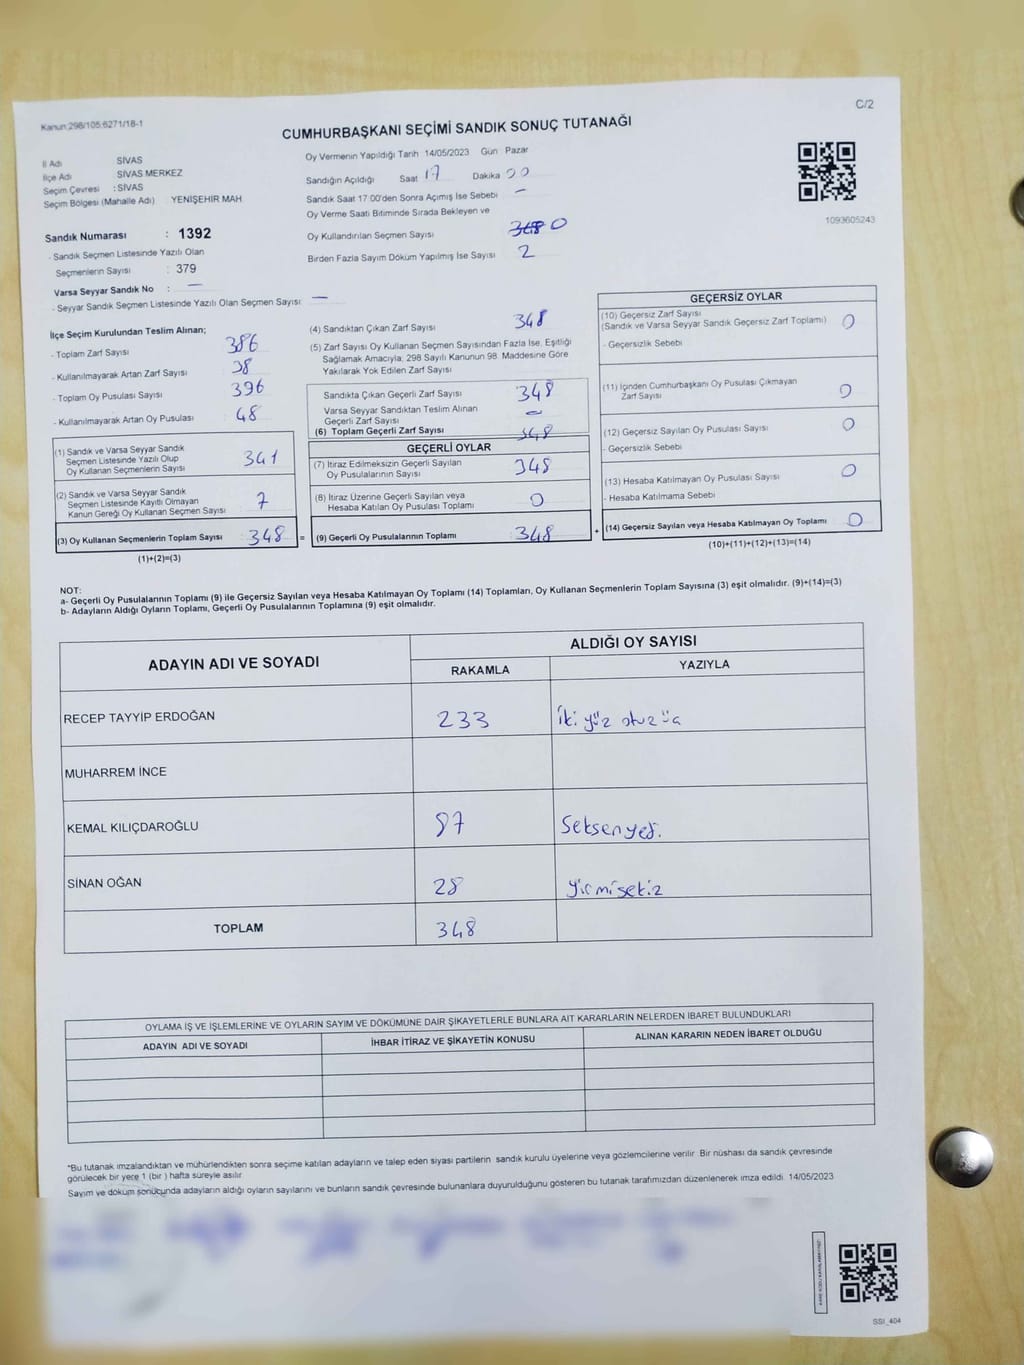 Kanun:298/105:6271/18-1
C/2
CUMHURBAŞKANI SEÇİMİ SANDIK SONUÇ TUTANAĞI
İl Adı SİVAS
İlçe Adı SİVAS MERKEZ
Seçim Çevresi : SİVAS
Seçim Bölgesi (Mahalle Adı) YENİŞEHİR MAH
Sandık Numarası : 1392
- Sandık Seçmen Listesinde Yazılı Olan
Seçmenlerin Sayısı : 379
Varsa Seyyar Sandık No : —
- Seyyar Sandık Seçmen Listesinde Yazılı Olan Seçmen Sayısı: —
Oy Vermenin Yapıldığı Tarih 14/05/2023 Gün Pazar
Sandığın Açıldığı Saat 17 Dakika 00
Sandık Saat 17:00'den Sonra Açımış İse Sebebi —
Oy Verme Saati Bitiminde Sırada Bekleyen ve
Oy Kullandırılan Seçmen Sayısı 348 0
Birden Fazla Sayım Döküm Yapılmış İse Sayısı 2
1093605243
İlçe Seçim Kurulundan Teslim Alınan;
- Toplam Zarf Sayısı 386
- Kullanılmayarak Artan Zarf Sayısı 38
- Toplam Oy Pusulası Sayısı 396
- Kullanılmayarak Artan Oy Pusulası 48
(1) Sandık ve Varsa Seyyar Sandık
Seçmen Listesinde Yazılı Olup
Oy Kullanan Seçmenlerin Sayısı 341
(2) Sandık ve Varsa Seyyar Sandık
Seçmen Listesinde Kayıtlı Olmayan
Kanun Gereği Oy Kullanan Seçmen Sayısı 7
(3) Oy Kullanan Seçmenlerin Toplam Sayısı 348 =
(1)+(2)=(3)
(4) Sandıktan Çıkan Zarf Sayısı 348
(5) Zarf Sayısı Oy Kullanan Seçmen Sayısından Fazla İse, Eşitliği
Sağlamak Amacıyla; 298 Sayılı Kanunun 98. Maddesine Göre
Yakılarak Yok Edilen Zarf Sayısı
Sandıkta Çıkan Geçerli Zarf Sayısı 348
Varsa Seyyar Sandıktan Teslim Alınan
Geçerli Zarf Sayısı —
(6) Toplam Geçerli Zarf Sayısı 348
GEÇERLİ OYLAR
(7) İtiraz Edilmeksizin Geçerli Sayılan
Oy Pusulalarının Sayısı 348
(8) İtiraz Üzerine Geçerli Sayılan veya
Hesaba Katılan Oy Pusulası Toplamı 0
(9) Geçerli Oy Pusulalarının Toplamı 348 +
GEÇERSİZ OYLAR
(10) Geçersiz Zarf Sayısı
(Sandık ve Varsa Seyyar Sandık Geçersiz Zarf Toplamı) 0
- Geçersizlik Sebebi
(11) İçinden Cumhurbaşkanı Oy Pusulası Çıkmayan
Zarf Sayısı 0
(12) Geçersiz Sayılan Oy Pusulası Sayısı 0
- Geçersizlik Sebebi
(13) Hesaba Katılmayan Oy Pusulası Sayısı 0
- Hesaba Katılmama Sebebi
(14) Geçersiz Sayılan veya Hesaba Katılmayan Oy Toplamı 0
(10)+(11)+(12)+(13)=(14)
NOT:
a- Geçerli Oy Pusulalarının Toplamı (9) ile Geçersiz Sayılan veya Hesaba Katılmayan Oy Toplamı (14) Toplamları, Oy Kullanan Seçmenlerin Toplam Sayısına (3) eşit olmalıdır. (9)+(14)=(3)
b- Adayların Aldığı Oyların Toplamı, Geçerli Oy Pusulalarının Toplamına (9) eşit olmalıdır.
ADAYIN ADI VE SOYADI
ALDIĞI OY SAYISI
RAKAMLA YAZIYLA
RECEP TAYYİP ERDOĞAN 233 İki yüz otuz üç
MUHARREM İNCE
KEMAL KILIÇDAROĞLU 87 Seksenyedi
SİNAN OĞAN 28 yirmisekiz
TOPLAM 348
OYLAMA İŞ VE İŞLEMLERİNE VE OYLARIN SAYIM VE DÖKÜMÜNE DAİR ŞİKAYETLERLE BUNLARA AİT KARARLARIN NELERDEN İBARET BULUNDUKLARI
ADAYIN ADI VE SOYADI İHBAR İTİRAZ VE ŞİKAYETİN KONUSU ALINAN KARARIN NEDEN İBARET OLDUĞU
*Bu tutanak imzalandıktan ve mühürlendikten sonra seçime katılan adayların ve talep eden siyasi partilerin sandık kurulu üyelerine veya gözlemcilerine verilir .Bir nüshası da sandık çevresinde
görülecek bir yere 1 (bir ) hafta süreyle asılır.
Sayım ve döküm sonucunda adayların aldığı oyların sayılarını ve bunların sandık çevresinde bulunanlara duyurulduğunu gösteren bu tutanak tarafımızdan düzenlenerek imza edildi. 14/05/2023
SSI_404